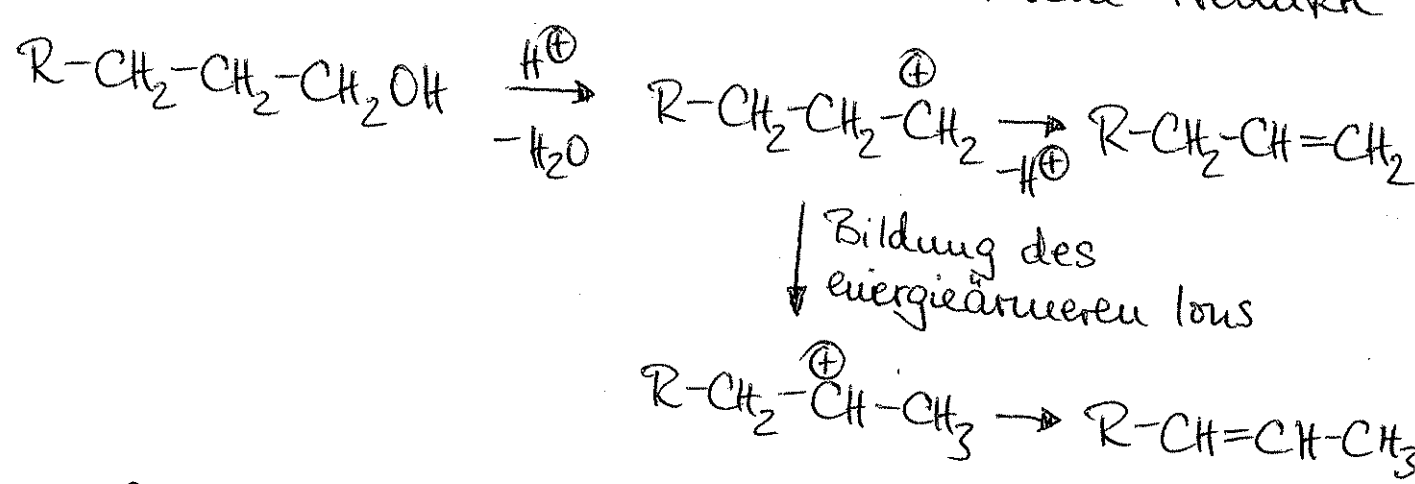 R-CH₂-CH₂-CH₂OH H⊕ -H₂O R-CH₂-CH₂-CH₂⊕ -H⊕ R-CH₂-CH=CH₂
Bildung des
energieärmeren Ions
R-CH₂-CH⊕-CH₃ R-CH=CH-CH₃